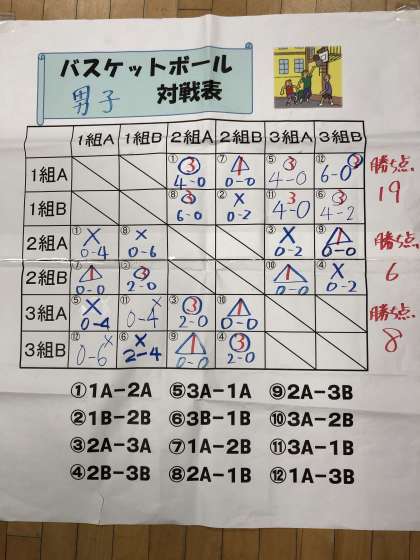 バスケットボール
男子 対戦表
1組A 1組B 2組A 2組B 3組A 3組B
1組A ① 3 4-0 ⑦ 1 0-0 ⑤ 3 4-0 ⑫ 3 6-0 勝ち点
1組B ⑧ 3 6-0 ② × 0-2 ⑪ 3 4-0 ⑥ 3 4-2 19
2組A ① × 0-4 ⑧ × 0-6 ③ × 0-2 ⑨ 1 0-0 勝ち点
2組B ⑦ 1 0-0 ② 3 2-0 ⑩ 1 0-0 ④ × 0-2 6
3組A ⑤ × 0-4 ⑪ × 0-4 ③ 3 2-0 ⑩ 1 0-0 勝ち点
3組B ⑫ × 0-6 ⑥ × 2-4 ⑨ 1 0-0 ④ 3 2-0 8
①1A-2A ⑤3A-1A ⑨2A-3B
②1B-2B ⑥3B-1B ⑩3A-2B
③2A-3A ⑦1A-2B ⑪3A-1B
④2B-3B ⑧2A-1B ⑫1A-3B